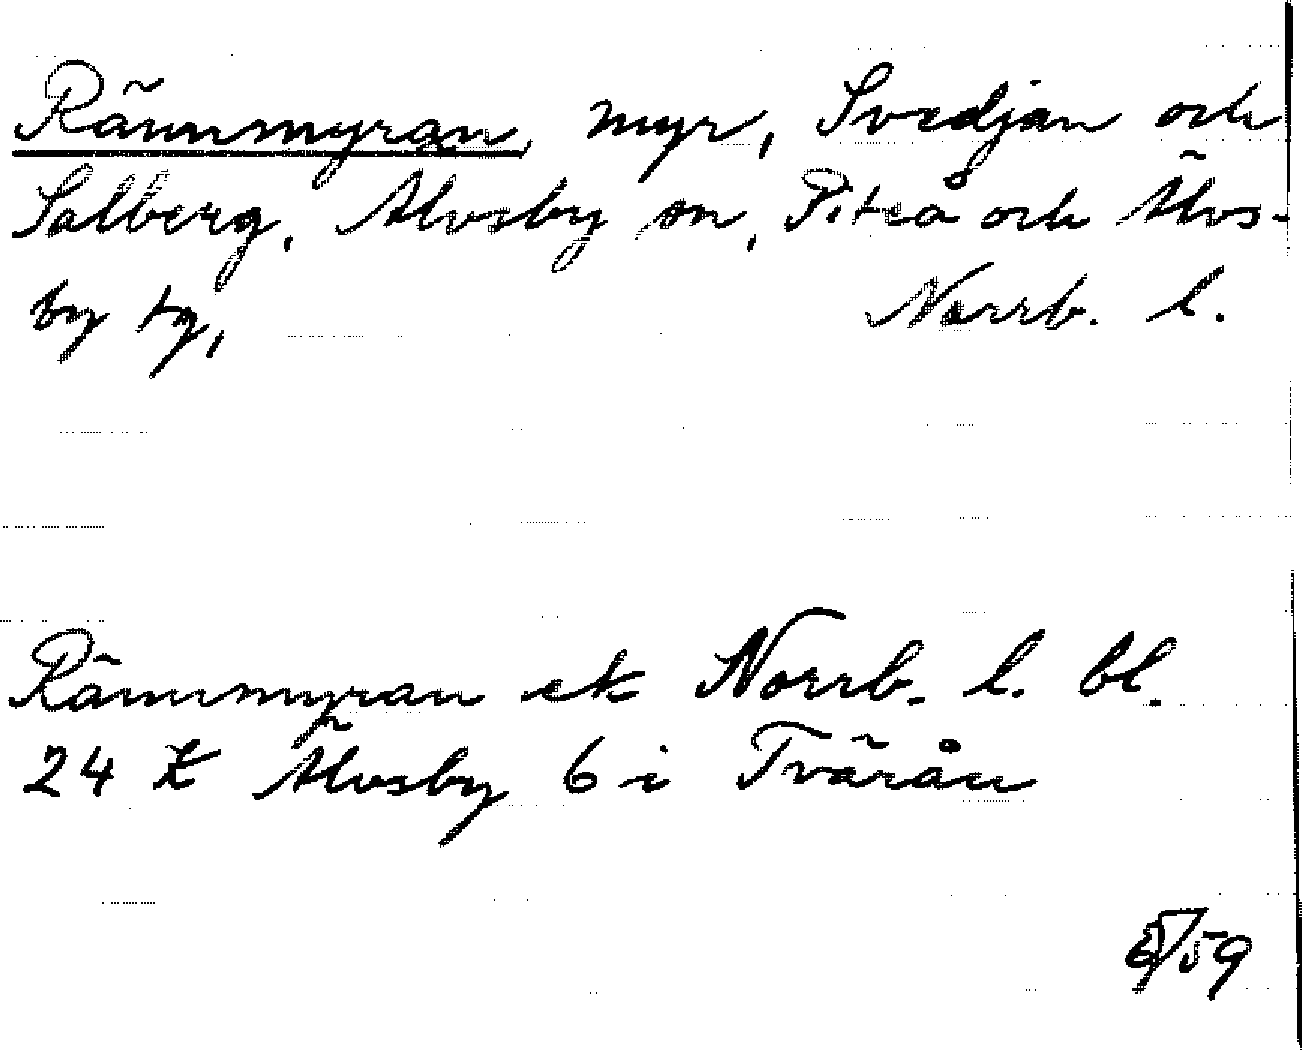 Rännmyran, myr, Svedjan och
Salberg, Älvsby sn, Piteå och Älvs-
by tg, Norrb. l.
Rännmyran ek Norrb. l. bl.
24 Älvsby 6 i Tvärån
/59